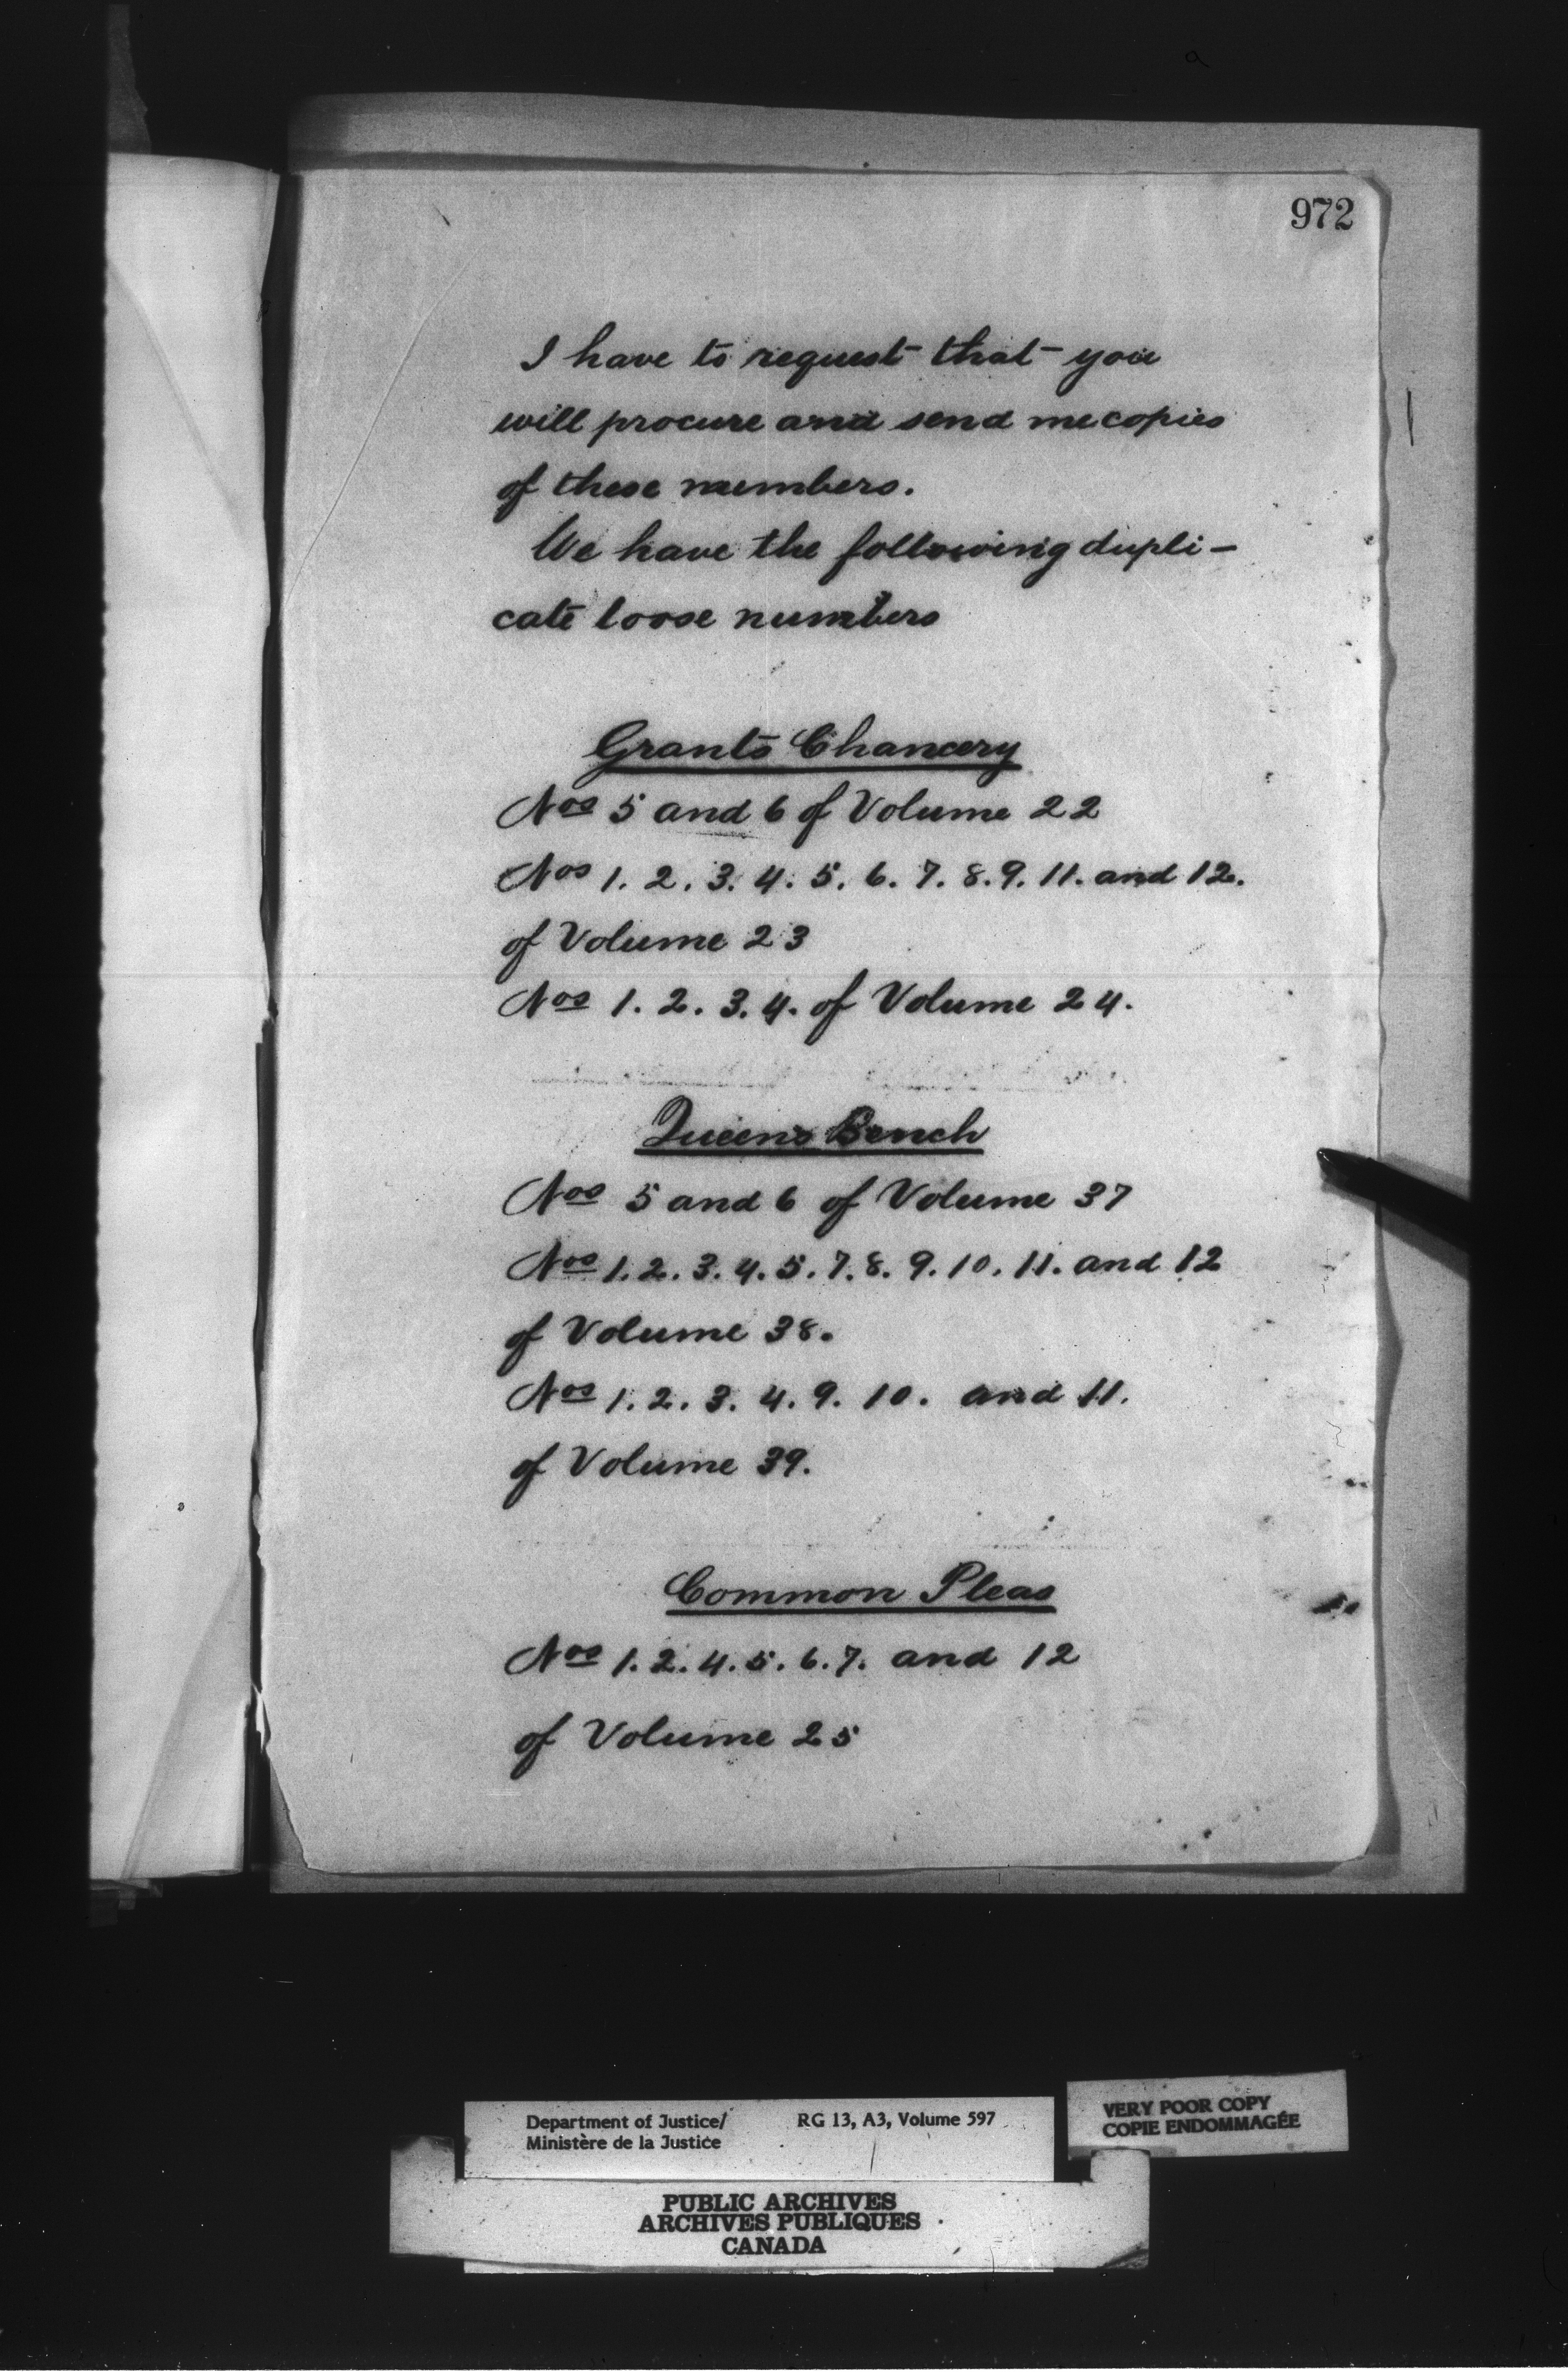 972
I have to request that you
will procure and send me copies
of these numbers.
We have the following dupli-
cate loose numbers
Grants Chancery
Nos 5 and 6 of Volume 22
Nos 1. 2. 3. 4. 5. 6. 7. 8. 9. 11. and 12.
of Volume 23
Nos 1. 2. 3. 4. of Volume 24.
Queens Bench
Nos 5 and 6 of Volume 37
Nos 1. 2. 3. 4. 5. 7. 8. 9. 10. 11. and 12
of Volume 38.
Nos 1. 2. 3. 4. 9. 10. and 11.
of Volume 39.
Common Pleas
Nos 1. 2. 4. 5. 6. 7. and 12
of Volume 25
Department of Justice/ RG 13, A3, Volume 597
Ministère de la Justice
VERY POOR COPY
COPIE ENDOMMAGÉE
PUBLIC ARCHIVES
ARCHIVES PUBLIQUES
CANADA